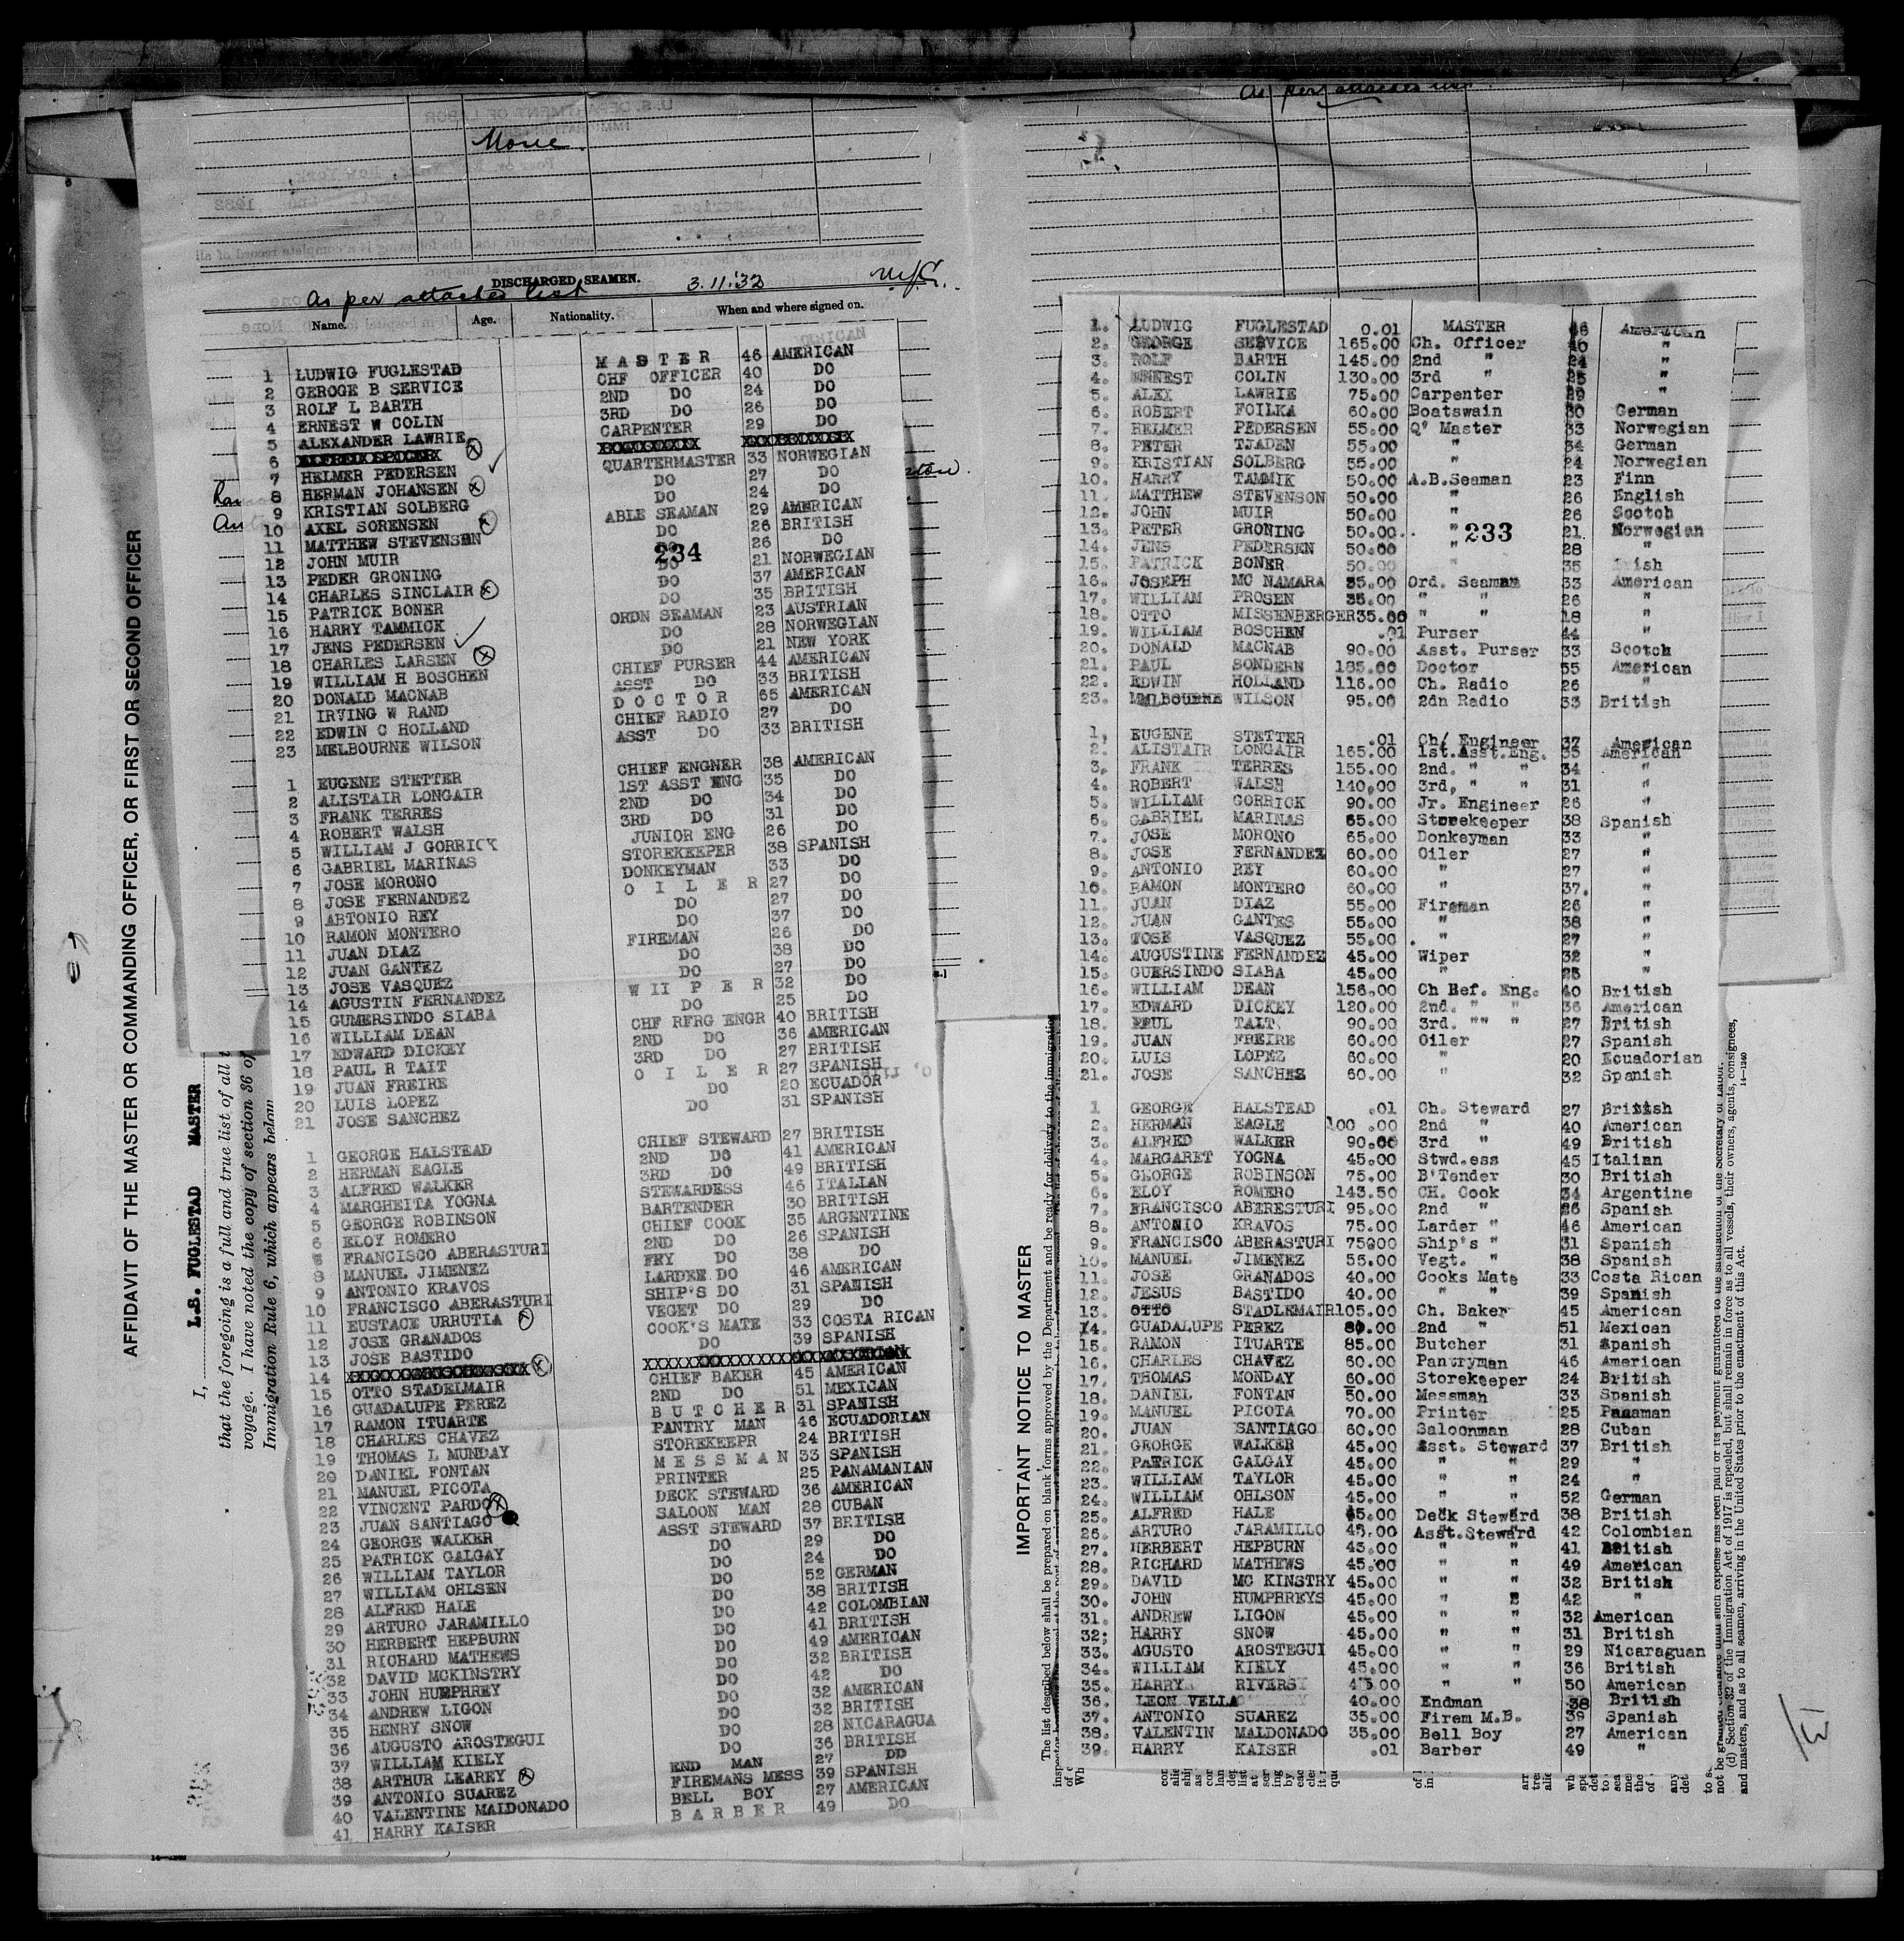 None
DISCHARGED SEAMEN.
As per attached list
3.11.'32
Name.
Age.
Nationality.
When and where signed on.
1 LUDWIG FUGLESTAD MASTER 46 AMERICAN
2 GEROGE B SERVICE CHF OFFICER 40 DO
3 ROLF L BARTH 2ND DO 24 DO
4 ERNEST W COLIN 3RD DO 26 DO
5 ALEXANDER LAWRIE CARPENTER 29 DO
6
7 HELMER PEDERSEN QUARTERMASTER 33 NORWEGIAN
8 HERMAN JOHANSEN DO 27 DO
9 KRISTIAN SOLBERG DO 24 DO
10 AXEL SORENSEN ABLE SEAMAN 29 AMERICAN
11 MATTHEW STEVENSEN DO 26 BRITISH
12 JOHN MUIR DO 26 DO
234
13 PEDER GRONING DO 21 NORWEGIAN
14 CHARLES SINCLAIR DO 37 AMERICAN
15 PATRICK BONER DO 35 BRITISH
16 HARRY TAMMICK ORDN SEAMAN 23 AUSTRIAN
17 JENS PEDERSEN DO 28 NORWEGIAN
18 CHARLES LARSEN DO 21 NEW YORK
19 WILLIAM H BOSCHEN CHIEF PURSER 44 AMERICAN
20 DONALD MACNAB ASST DO 33 BRITISH
21 IRVING W RAND DOCTOR 65 AMERICAN
22 EDWIN C HOLLAND CHIEF RADIO 27 DO
23 MELBOURNE WILSON ASST DO 33 BRITISH
1 EUGENE STETTER CHIEF ENGNER 38 AMERICAN
2 ALISTAIR LONGAIR 1ST ASST ENG 35 DO
3 FRANK TERRES 2ND DO 34 DO
4 ROBERT WALSH 3RD DO 31 DO
5 WILLIAM J GORRICK JUNIOR ENG 26 DO
6 GABRIEL MARINAS STOREKEEPER 38 SPANISH
7 JOSE MORONO DONKEYMAN 33 DO
8 JOSE FERNANDEZ O I L E R 27 DO
9 ABTONIO REY DO 27 DO
10 RAMON MONTERO DO 37 DO
11 JUAN DIAZ FIREMAN 26 DO
12 JUAN GANTEZ DO 38 DO
13 JOSE VASQUEZ DO 27 DO
14 AGUSTIN FERNANDEZ W II P E R 32 DO
15 GUMERSINDO SIABA DO 25 DO
16 WILLIAM DEAN CHF RFRG ENGR 40 BRITISH
17 EDWARD DICKEY 2ND DO 36 AMERICAN
18 PAUL R TAIT 3RD DO 27 BRITISH
19 JUAN FREIRE O I L E R 27 SPANISH
20 LUIS LOPEZ DO 20 ECUADOR
21 JOSE SANCHEZ DO 31 SPANISH
1 GEORGE HALSTEAD CHIEF STEWARD 27 BRITISH
2 HERMAN EAGLE 2ND DO 41 AMERICAN
3 ALFRED WALKER 3RD DO 49 BRITISH
4 MARGHEITA YOGNA STEWARDESS 46 ITALIAN
5 GEORGE ROBINSON BARTENDER 30 BRITISH
6 ELOY ROMERO CHIEF COOK 35 ARGENTINE
7 FRANCISCO ABERASTURI 2ND DO 26 SPANISH
8 MANUEL JIMENEZ FRY DO 38 DO
9 ANTONIO KRAVOS LARDER DO 46 AMERICAN
10 FRANCISCO ABERASTURI SHIP'S DO 31 SPANISH
11 EUSTACE URRUTIA VEGET DO 29 DO
12 JOSE GRANADOS COOK'S MATE 33 COSTA RICAN
13 JOSE BASTIDO DO 39 SPANISH
14
15 OTTO STADELMAIR CHIEF BAKER 45 AMERICAN
16 GUADALUPE PEREZ 2ND DO 51 MEXICAN
17 RAMON ITUARTE BUTCHER 31 SPANISH
18 CHARLES CHAVEZ PANTRY MAN 46 ECUADORIAN
19 THOMAS L MUNDAY STOREKEEPR 24 BRITISH
20 DANIEL FONTAN MESSMAN 33 SPANISH
21 MANUEL PICOTA PRINTER 25 PANAMANIAN
22 VINCENT PARDO DECK STEWARD 36 AMERICAN
23 JUAN SANTIAGO SALOON MAN 28 CUBAN
24 GEORGE WALKER ASST STEWARD 37 BRITISH
25 PATRICK GALGAY DO 29 DO
26 WILLIAM TAYLOR DO 24 DO
27 WILLIAM OHLSEN DO 52 GERMAN
28 ALFRED HALE DO 38 BRITISH
29 ARTURO JARAMILLO DO 42 COLOMBIAN
30 HERBERT HEPBURN DO 41 BRITISH
31 RICHARD MATHEWS DO 49 AMERICAN
32 DAVID MCKINSTRY DO 32 BRITISH
33 JOHN HUMPHREY DO 42 DO
34 ANDREW LIGON DO 32 AMERICAN
35 HENRY SNOW DO 32 BRITISH
36 AUGUSTO AROSTEGUI DO 28 NICARAGUA
37 WILLIAM KIELY DO 36 BRITISH
38 ARTHUR LEAREY END MAN 27 DO
39 ANTONIO SUAREZ FIREMANS MESS 39 SPANISH
40 VALENTINE MALDONADO BELL BOY 27 AMERICAN
41 HARRY KAISER BARBER 49 DO
AFFIDAVIT OF THE MASTER OR COMMANDING OFFICER, OR FIRST OR SECOND OFFICER
I, L.S. FUGLESTAD MASTER
that the foregoing is a full and true list of all
voyage. I have noted the copy of section 36 of
Immigration Rule 6, which appears below
As per attached list
1. LUDWIG FUGLESTAD 0.01 MASTER 46 American
2. GEORGE SERVICE 165.00 Ch. Officer 40 "
3. ROLF BARTH 145.00 2nd " 24 "
4. ERNEST COLIN 130.00 3rd " 25 "
5. ALEX LAWRIE 75.00 Carpenter 29 "
6. ROBERT FOILKA 60.00 Boatswain 30 German
7. HELMER PEDERSEN 55.00 Q' Master 33 Norwegian
8. PETER TJADEN 55.00 " 34 German
9. KRISTIAN SOLBERG 55.00 " 24 Norwegian
10. HARRY TAMMIK 50.00 A.B.Seaman 23 Finn
11. MATTHEW STEVENSON 50.00 " 26 English
12. JOHN MUIR 50.00 " 26 Scotch
13. PETER GRONING 50.00 " 21 Norwegian
233
14. JENS PEDERSEN 50.00 " 28 "
15. PATRICK BONER 50.00 " 35 Irish
16. JOSEPH MC NAMARA 35.00 Ord. Seaman 33 American
17. WILLIAM PROSEN 35.00 " " 26 "
18. OTTO MISSENBERGER 35.00 " " 18 "
19. WILLIAM BOSCHEN .01 Purser 44 "
20. DONALD MACNAB 90.00 Asst. Purser 33 Scotch
21. PAUL SONDERN 185.00 Doctor 55 American
22. EDWIN HOLLAND 116.00 Ch. Radio 26 "
23. MELBOURNE WILSON 95.00 2dn Radio 33 British
1, EUGENE STETTER .01 Ch/ Engineer 37 American
2. ALISTAIR LONGAIR 165.00 1st.Asst.Eng. 35 American
3. FRANK TERRES 155.00 2nd. " " 34 "
4. ROBERT WALSH 140,00 3rd, " " 31 "
5. WILLIAM GORRICK 90.00 Jr. Engineer 26 "
6. GABRIEL MARINAS 65.00 Storekeeper 38 Spanish
7. JOSE MORONO 65.00 Donkeyman 33 "
8. JOSE FERNANDEZ 60.00 Oiler 27 "
9. ANTONIO REY 60.00 " 27 "
10. RAMON MONTERO 60.00 " 37. "
11. JUAN DIAZ 55.00 Fireman 26 "
12. JUAN GANTES 55.00 " 38 "
13. JOSE VASQUEZ 55.00 " 27 "
14. AUGUSTINE FERNANDEZ 45.00 Wiper 32 "
15. GUERSINDO SIABA 45.00 " 25 "
16. WILLIAM DEAN 156.00 Ch Ref. Eng. 40 British
17. EDWARD DICKEY 120.00 2nd. " " 36 American
18. PEUL TAIT 90.00 3rd. "" " 27 British
19. JUAN FREIRE 60.00 Oiler 27 Spanish
20. LUIS LOPEZ 60.00 " 20 Ecuadorian
21. JOSE SANCHES 60.00 " 32 Spanish
1 GEORGE HALSTEAD .01 Ch. Steward 27 British
2. HERMAN EAGLE 100 .00 2nd " 40 American
3. ALFRED WALKER 90.00 3rd " 49 British
4. MARGARET YOGNA 45.00 Stwd.ess 45 Italian
5. GEORGE ROBINSON 75.00 B'Tender 30 British
6. ELOY ROMERO 143.50 CH. Cook 34 Argentine
7. FRANCISCO ABERESTURI 95.00 2nd " 26 Spanish
8. ANTONIO KRAVOS 75.00 Larder " 46 American
9. FRANCISCO ABERASTURI 75000 Ship's " 31 Spanish
10. MANUEL JIMENEZ 55.00 Vegt. " 38 Spanish
11. JOSE GRANADOS 40.00 Cooks Mate 33 Costa Rican
12. JESUS BASTIDO 40.00 " " 39 Spanish
13. OTTO STADLEMAIR 105.00 Ch. Baker 45 American
14. GUADALUPE PEREZ 80.00 2nd " 51 Mexican
15. RAMON ITUARTE 85.00 Butcher 31 Spanish
16. CHARLES CHAVEZ 60.00 Pantryman 46 American
17. THOMAS MONDAY 60.00 Storekeeper 24 British
18. DANIEL FONTAN 50.00 Messman 33 Spanish
19. MANUEL PICOTA 70.00 Printer 25 Panaman
20. JUAN SANTIAGO 60.00 Saloonman 28 Cuban
21. GEORGE WALKER 45.00 Asst. Steward 37 British
22. PATRICK GALGAY 45.00 " " 29 "
23. WILLIAM TAYLOR 45.00 " " 24 "
24. WILLIAM OHLSON 45.00 " " 52 German
25. ALFRED HALE 45.00 Deck Steward 38 British
26. ARTURO JARAMILLO 45.00 Asst.Steward 42 Colombian
27. HERBERT HEPBURN 45.00 " " 41 British
28. RICHARD MATHEWS 45.00 " " 49 American
29. DAVID MC KINSTRY 45.00 " " 32 British
30. JOHN HUMPHREYS 45.00 " " 42 "
31. ANDREW LIGON 45.00 " " 32 American
32; HARRY SNOW 45.00 " " 31 British
33. AGUSTO AROSTEGUI 45.00 " " 29 Nicaraguan
34. WILLIAM KIELY 45.00 " " 36 British
35. HARRY RIVERS 45.00 " " 50 American
36. LEON VELLA 40.00 Endman 38 British
37. ANTONIO SUAREZ 35.00 Firem M.B. 39 Spanish
38. VALENTIN MALDONADO 35.00 Bell Boy 27 American
39. HARRY KAISER .01 Barber 49 "
IMPORTANT NOTICE TO MASTER
The list described below shall be prepared on blank forms approved by the Department and be ready for delivery to the immigration
(d) Section 32 of the Immigration Act of 1917 is repealed, but shall remain in force as to all vessels, their owners, agents, consignees,
and masters, and as to all seamen, arriving in the United States prior to the enactment of this Act.
14—1240